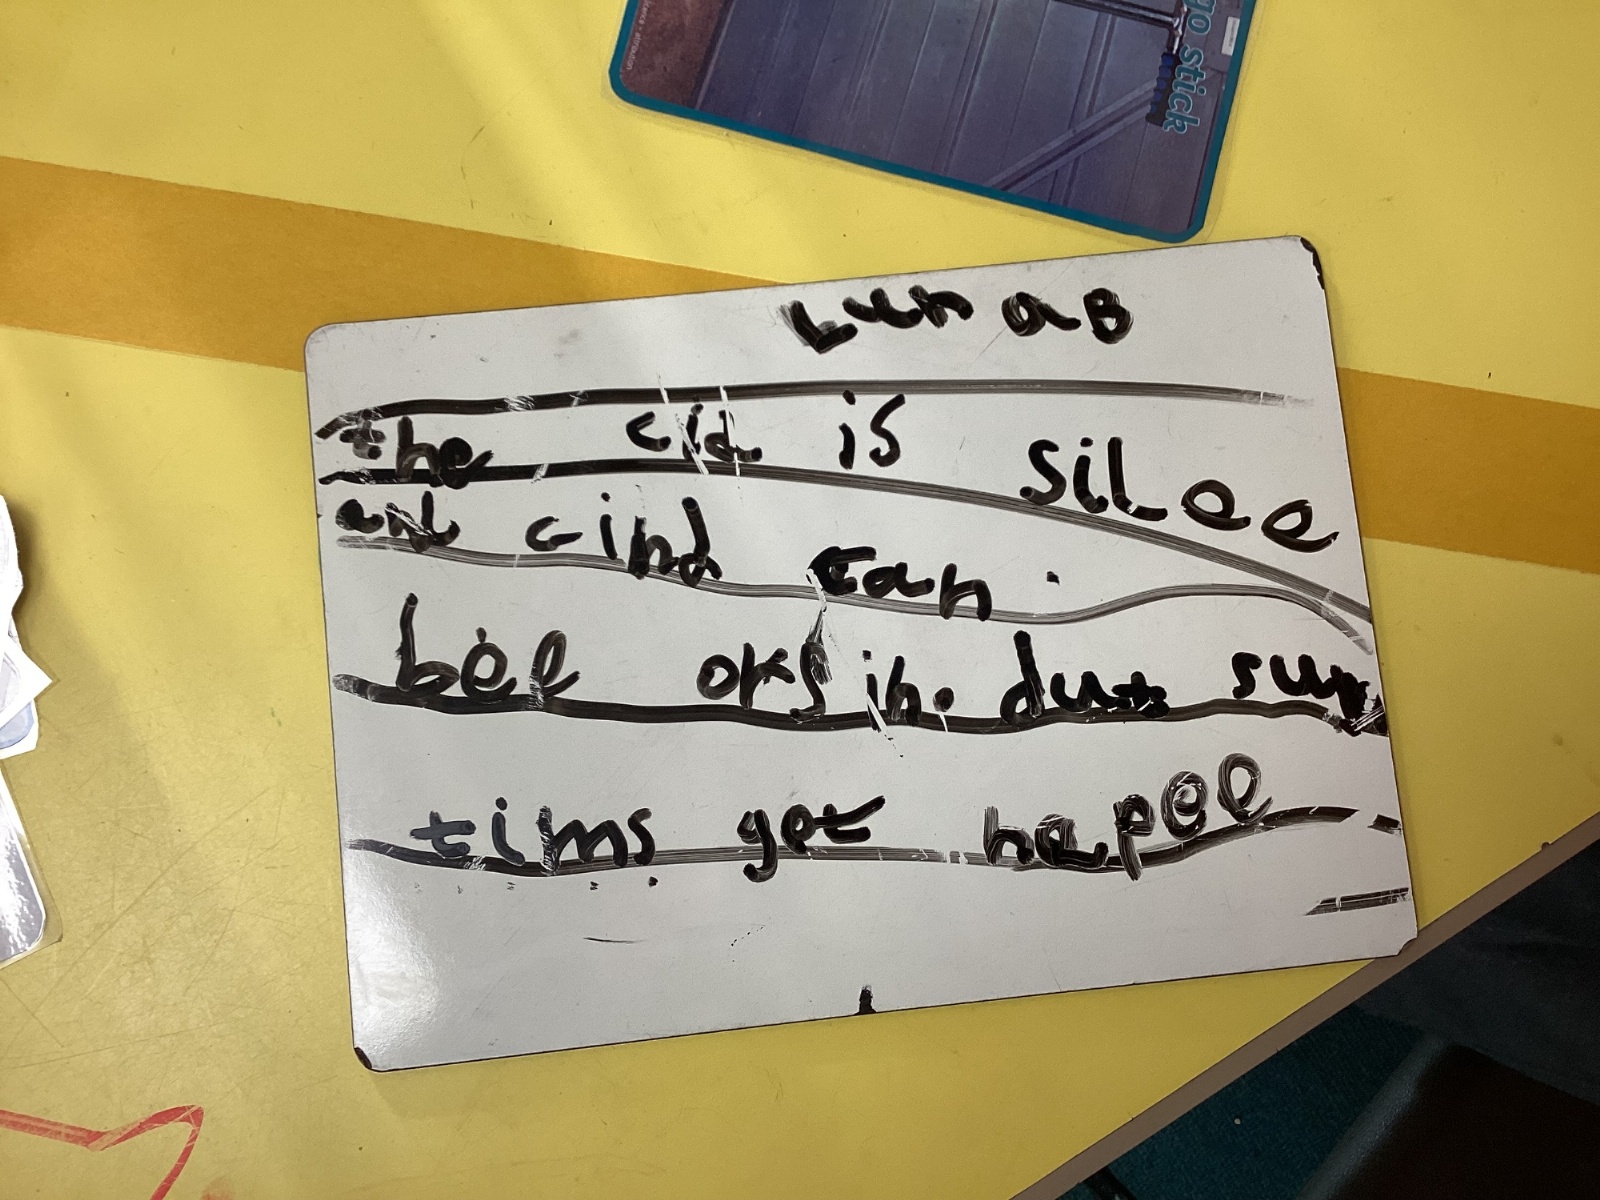 go stick
the cid is silee
and cind can
bee orsin. dut sum
tims get hapee